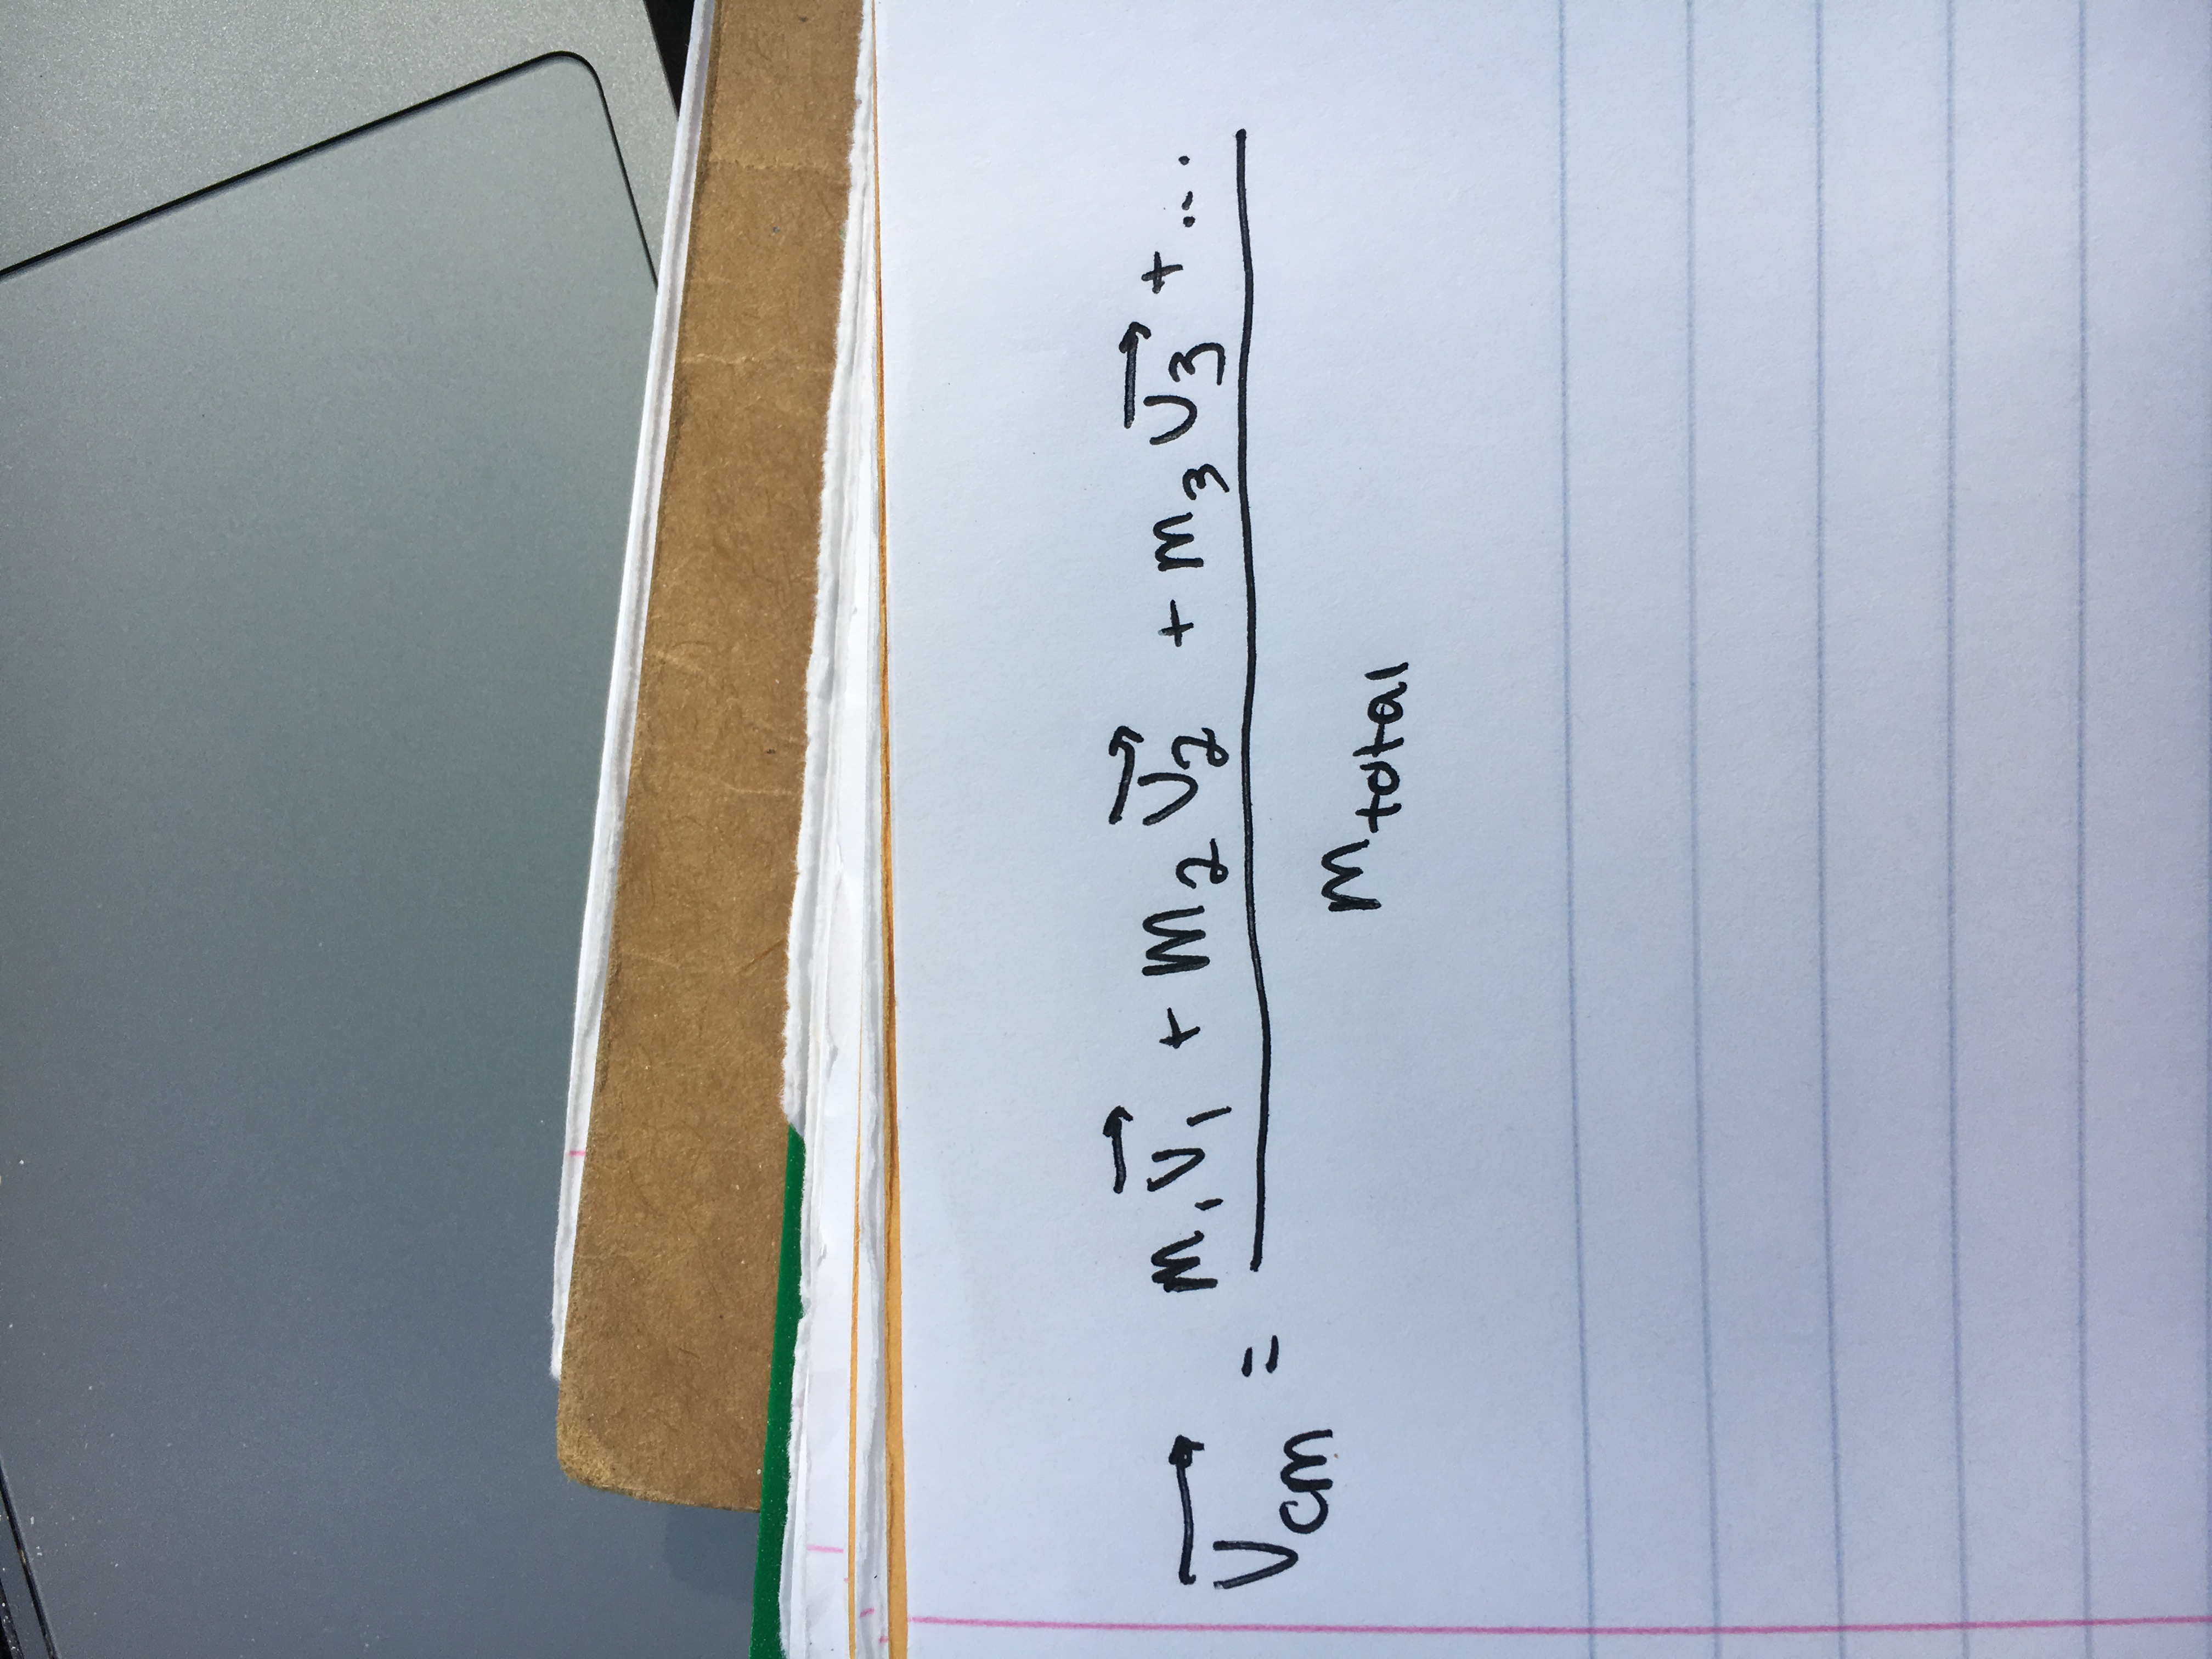 v⃗cm = m₁v⃗₁ + m₂v⃗₂ + m₃v⃗₃ + ...
mtotal